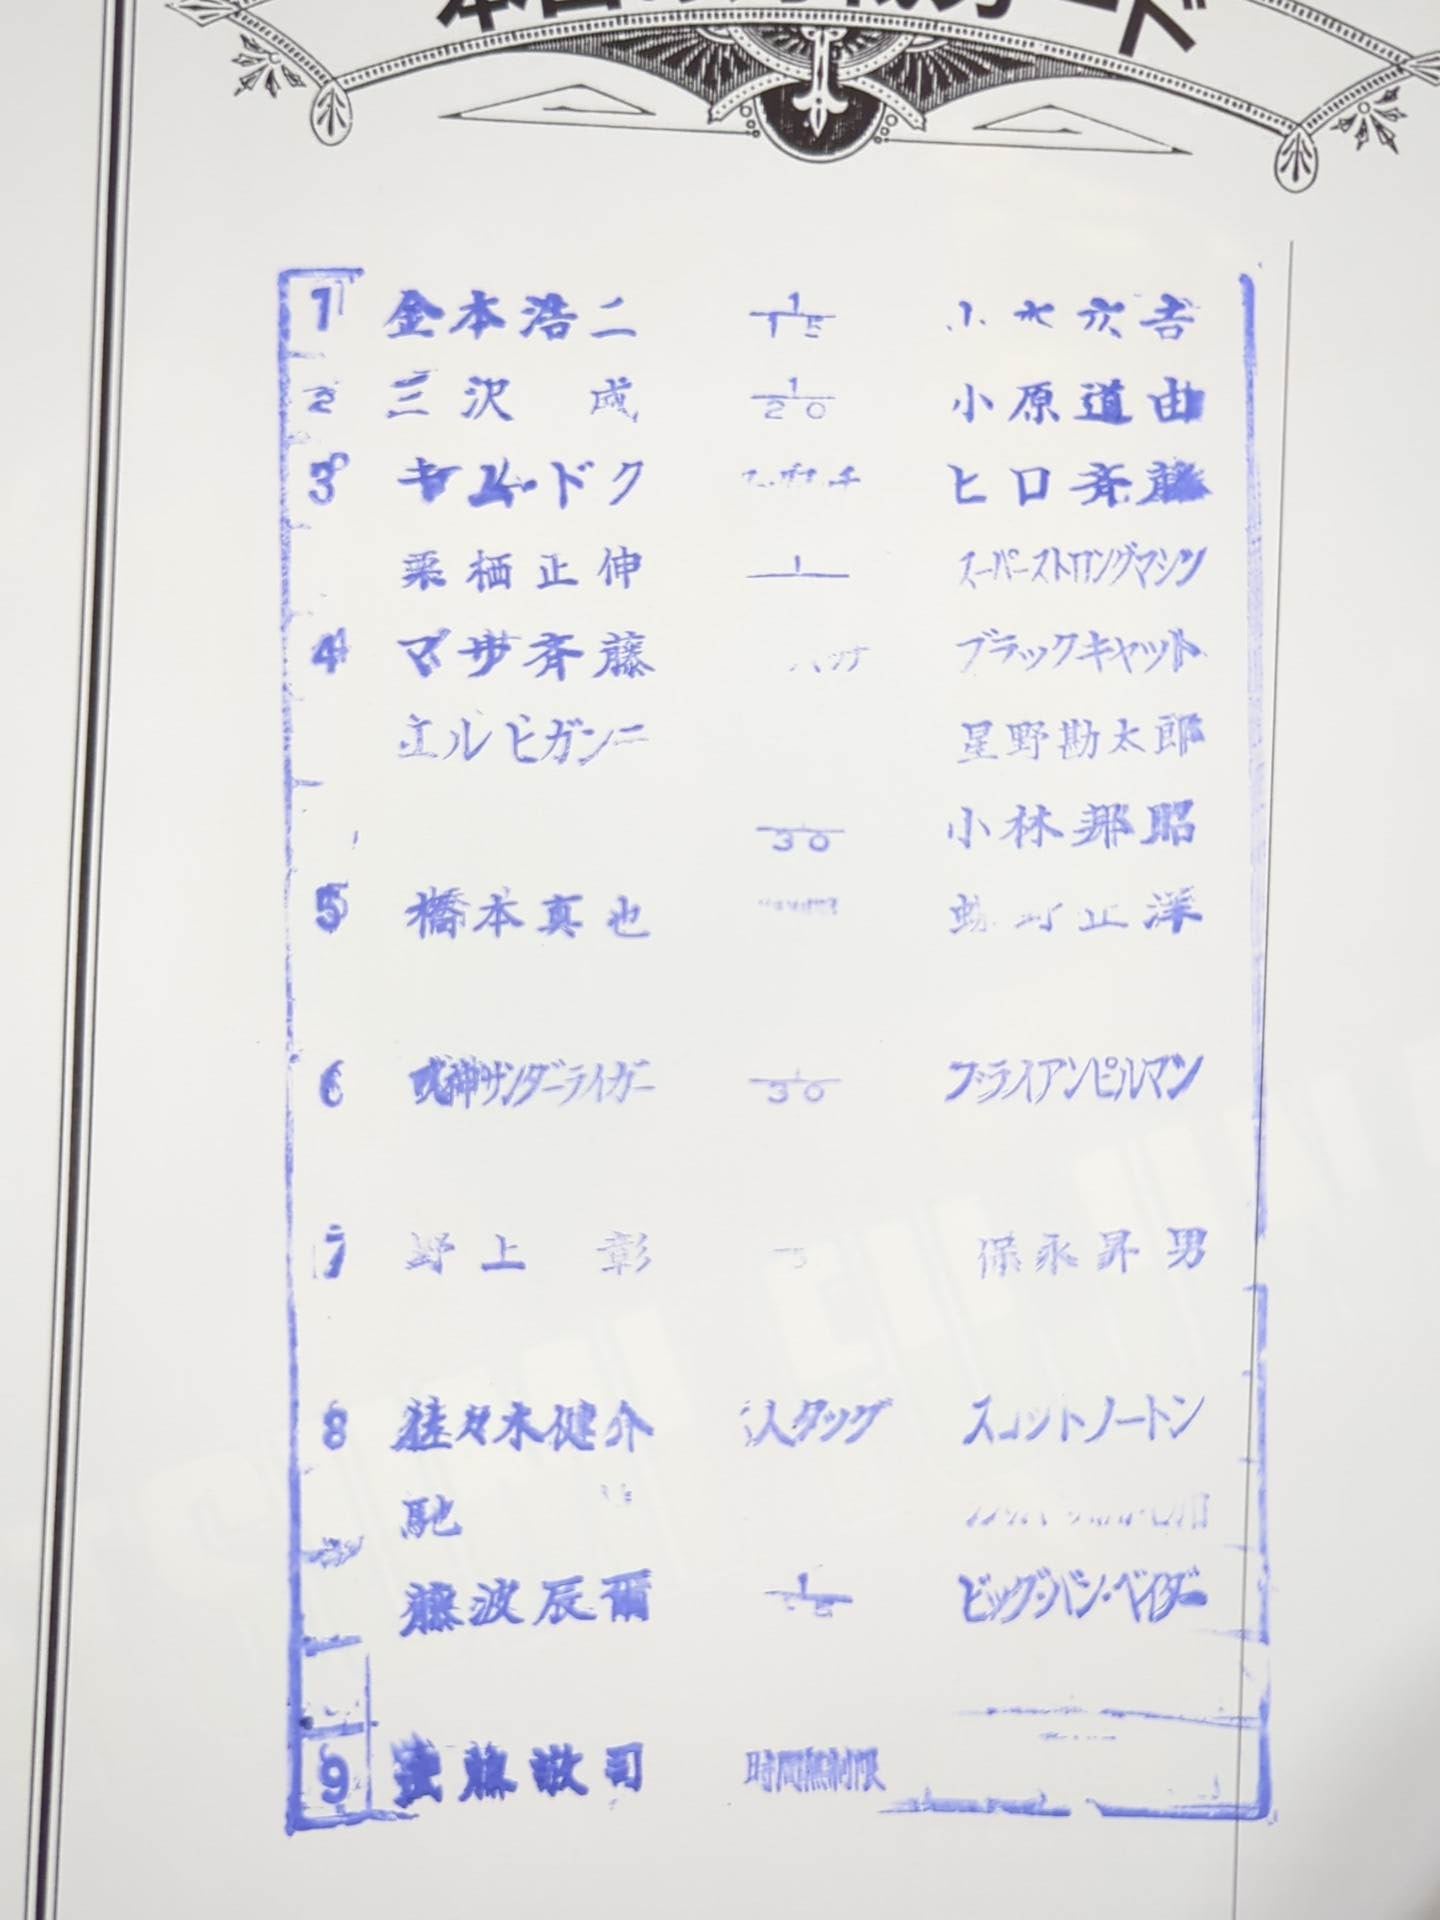 1 金本浩二 1/15
2 三沢 威 1/20 小原道由
3 キム・ドク ヒロ斉藤
栗栖正伸 1 スーパーストロングマシン
4 マサ斉藤 ブラックキャット
エルビガンニ 星野勘太郎
30 小林邦昭
5 橋本真也 正洋
6 獣神サンダーライガー 1/30 ブライアンピルマン
7 野上 彰 保永昇男
8 佐々木健介 人タッグ スコットノートン
馳
藤波辰爾 1 ビッグ・バン・ベイダー
9 武藤敬司 時間無制限